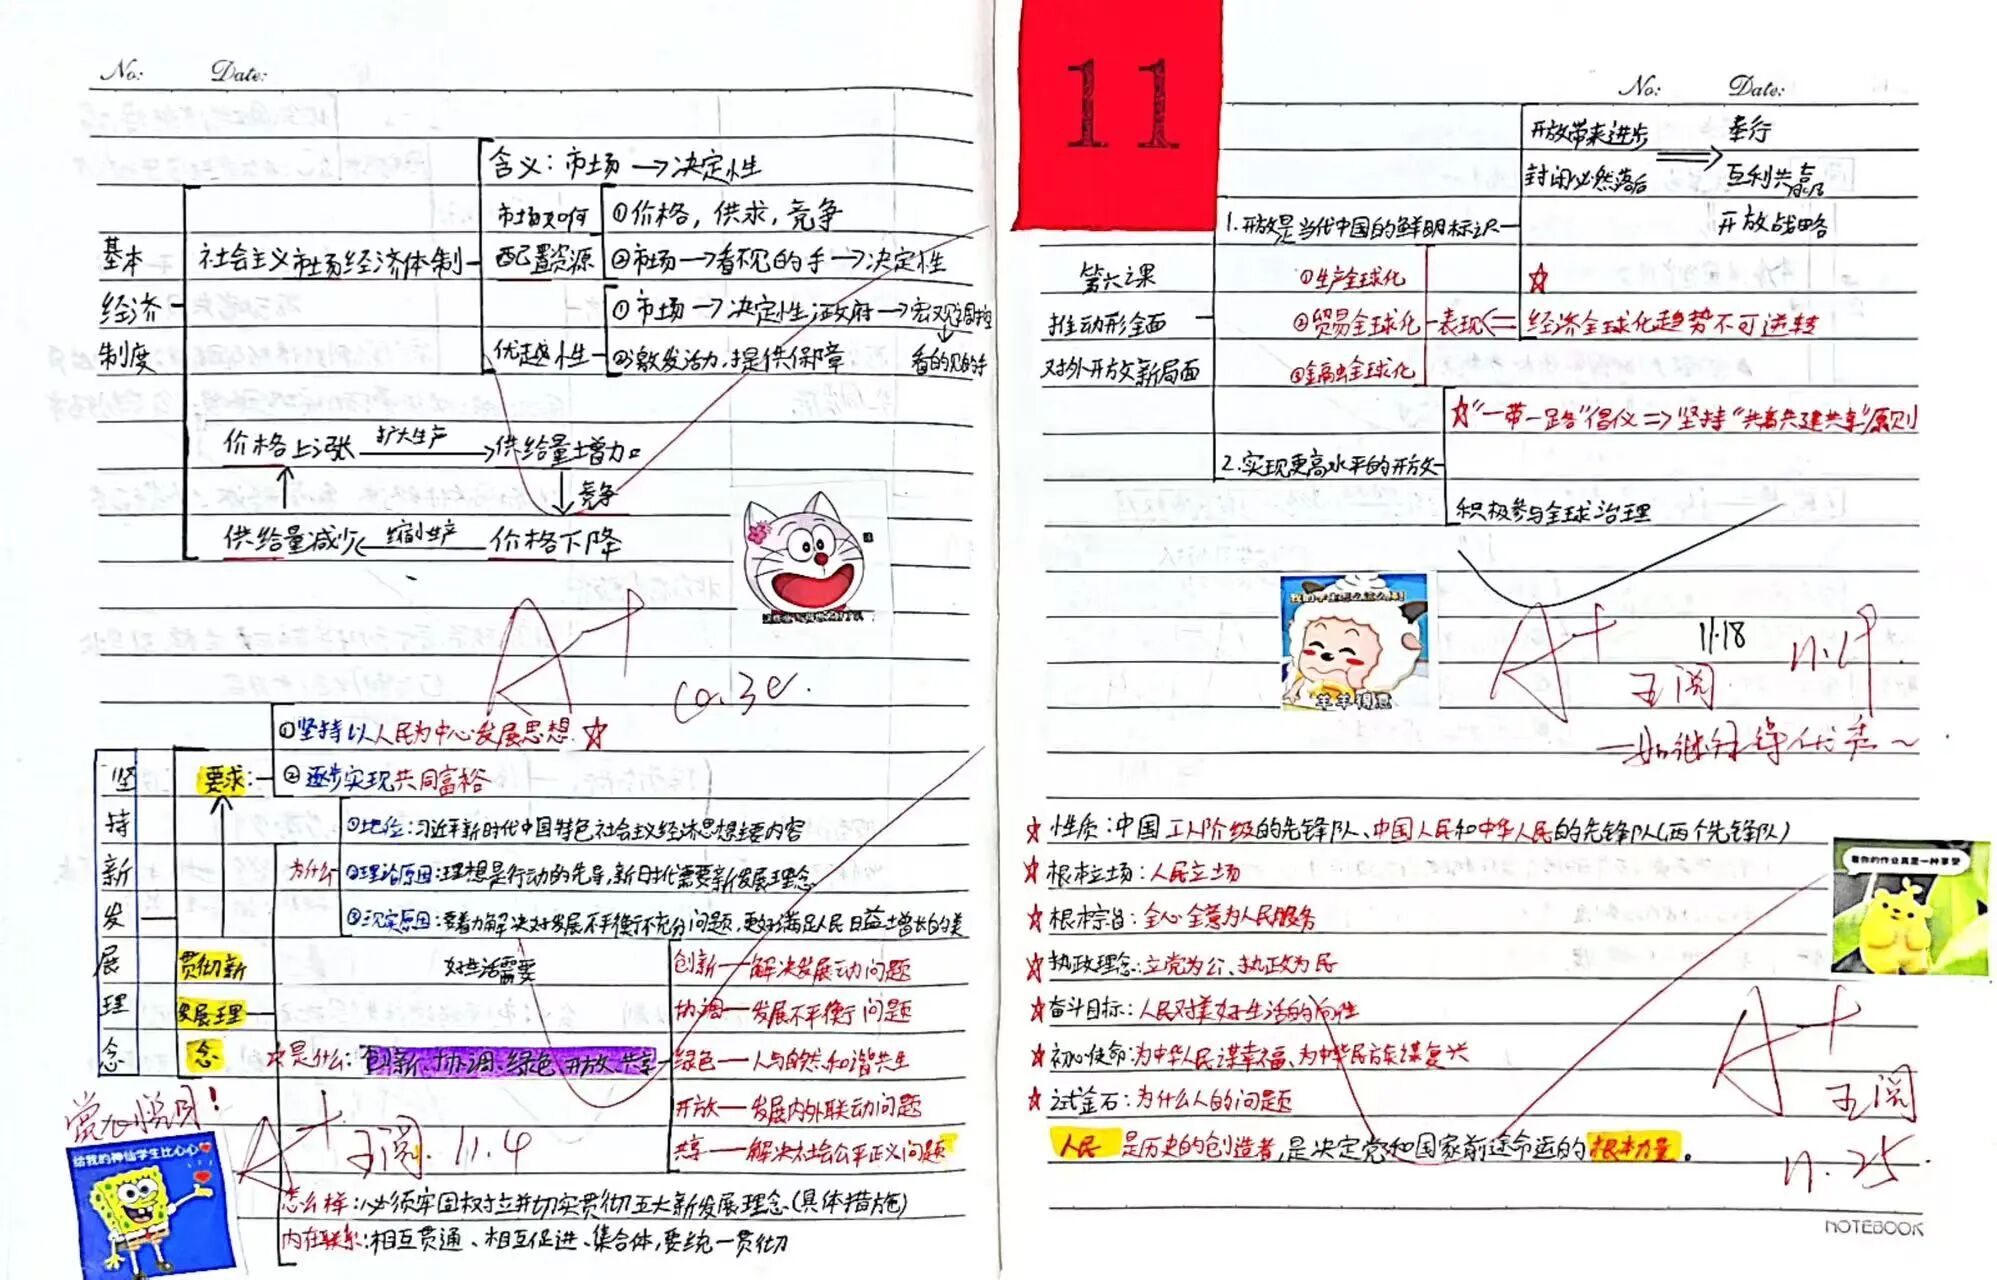 No:
Date:
含义：市场→决定性
市场如何
配置资源
①价格，供求，竞争
②市场→看不见的手→决定性
基本
经济
制度
社会主义市场经济体制
优越性
①市场→决定性；政府→宏观调控
看的见的手
②激发活力，提供保障
价格上涨
扩大生产
供给量增加
竞争
供给量减少
缩小生产
价格下降
A+
10.30.
①坚持以人民为中心发展思想 ☆
②逐步实现共同富裕
要求：
坚持新发展理念
为什么
①地位：习近平新时代中国特色社会主义经济思想主要内容
②理论原因：理想是行动的先导，新时代需要新发展理念
③现实原因：要着力解决好发展不平衡不充分问题，更好满足人民日益增长的美
好生活需要
贯彻新
发展理
念
☆是什么：创新、协调、绿色、开放、共享
创新——解决发展动问题
协调——发展不平衡问题
绿色——人与自然和谐共生
开放——发展内外联动问题
共享——解决社会公平正义问题
A+
王阅.
11.4
给我的神仙学生比心心
怎么样：必须牢固树立并切实贯彻五大新发展理念（具体措施）
内在联系：相互贯通、相互促进、集合体，要统一贯彻
11
No:
Date:
开放带来进步
封闭必然落后
奉行
互利共赢
开放战略
1.开放是当代中国的鲜明标识
第六课
推动形全面
对外开放新局面
①生产全球化
②贸易全球化
③金融全球化
表现
☆
经济全球化趋势不可逆转
☆"一带一路"倡仪⇒坚持"共商共建共享"原则
2.实现更高水平的开放
积极参与全球治理
羊羊得意
A+
11.18
王阅
11.19
☆性质：中国工人阶级的先锋队、中国人民和中华人民的先锋队（两个先锋队）
☆根本立场：人民立场
☆根本宗旨：全心全意为人民服务
☆执政理念：立党为公、执政为民
☆奋斗目标：人民对美好生活的向性
☆初心使命：为中华人民谋幸福、为中华民族谋复兴
☆试金石：为什么人的问题
人民是历史的创造者，是决定党和国家前途命运的根本力量。
看你的作业真是一种享受
A+
王阅
11.25
NOTEBOOK